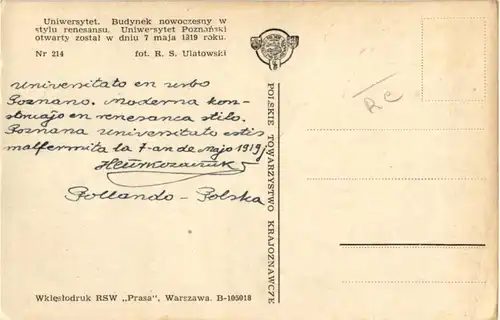 Uniwersytet. Budynek nowoczesny w
stylu renesansu. Uniwersytet Poznański
otwarty został w dniu 7 maja 1919 roku.
Nr 214 fot. R. S. Ulatowski
Universitato en urbo
Poznano. Moderna kon-
struaĵo en renesanca stilo.
Poznana Universitato estis
malfermita la 7-an de Majo 1919j
Pollando - Polska
POLSKIE TOWARZYSTWO KRAJOZNAWCZE
RC
Wklęsłodruk RSW „Prasa", Warszawa. B-105018